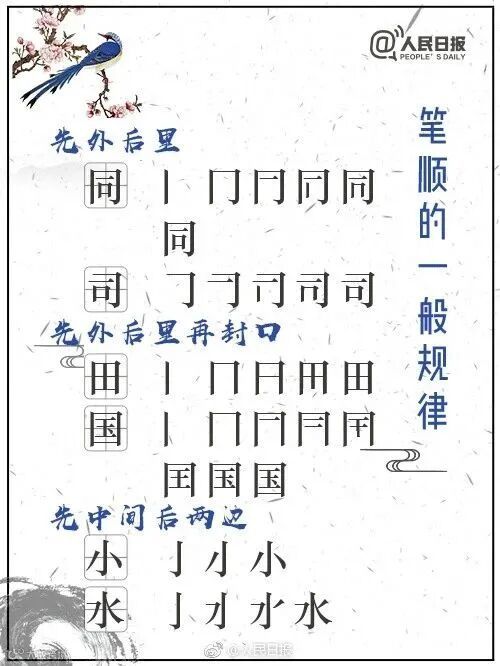 @人民日报
PEOPLE'S DAILY
笔顺的一般规律
先外后里
同 丨 冂 冂 冋 同
同
司 𠃌 司 司
先外后里再封口
田 丨 冂 田
国 丨 冂
国 国
先中间后两边
小 亅 小
水 亅 水
@人民日报